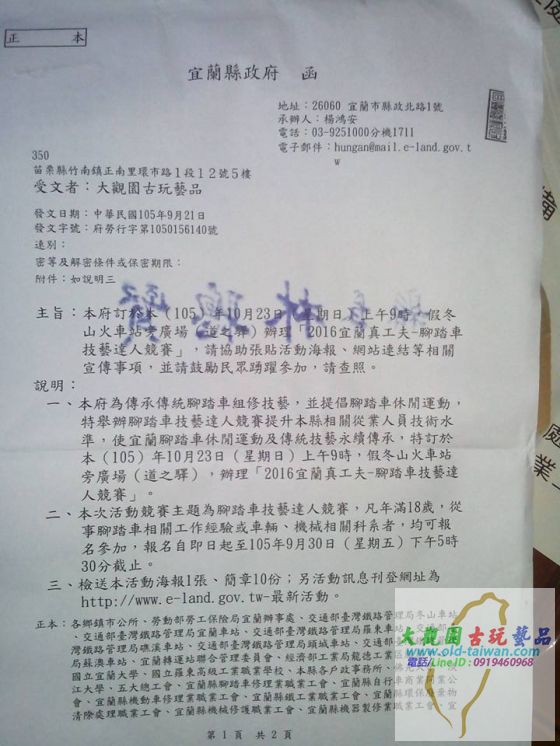 正 本
宜蘭縣政府 函
地址：26060 宜蘭市縣政北路1號
承辦人：楊鴻安
電話：03-9251000分機1711
電子郵件：hungan@mail.e-land.gov.t
w
350
苗栗縣竹南鎮正南里環市路1段12號5樓
受文者：大觀園古玩藝品
發文日期：中華民國105年9月21日
發文字號：府勞行字第1050156140號
速別：
密等及解密條件或保密期限：
附件：如說明三
主旨：本府訂於本（105）年10月23日（星期日）上午9時，假冬
山火車站旁廣場（道之驛）辦理「2016宜蘭真工夫-腳踏車
技藝達人競賽」，請協助張貼活動海報、網站連結等相關
宣傳事項，並請鼓勵民眾踴躍參加，請查照。
說明：
一、本府為傳承傳統腳踏車組修技藝，並提倡腳踏車休閒運動，
特舉辦腳踏車技藝達人競賽提升本縣相關從業人員技術水
準，使宜蘭腳踏車休閒運動及傳統技藝永續傳承，特訂於
本（105）年10月23日（星期日）上午9時，假冬山火車站
旁廣場（道之驛），辦理「2016宜蘭真工夫-腳踏車技藝達
人競賽」。
二、本次活動競賽主題為腳踏車技藝達人競賽，凡年滿18歲，從
事腳踏車相關工作經驗或車輛、機械相關科系者，均可報
名參加，報名自即日起至105年9月30日（星期五）下午5時
30分截止。
三、檢送本活動海報1張、簡章10份；另活動訊息刊登網址為
http://www.e-land.gov.tw-最新活動。
正本：各鄉鎮市公所、勞動部勞工保險局宜蘭辦事處、交通部臺灣鐵路管理局冬山車站
、交通部臺灣鐵路管理局宜蘭車站、交通部臺灣鐵路管理局羅東車站、交通部臺
灣鐵路管理局礁溪車站、交通部臺灣鐵路管理局頭城車站、交通部臺灣鐵路管理
局蘇澳車站、宜蘭轉運站聯合管理委員會、經濟部工業局龍德工業區
國立宜蘭大學、國立羅東高級工業職業學校、本縣各戶政事務所、佛光大
江大學、五大總工會、宜蘭縣腳踏車修理業職業工會、宜蘭縣自行車商業同業公
會、宜蘭縣機動車修理業職業工會、宜蘭縣鐵工業職業工會、宜蘭縣環保廢棄物
清除處理職業工會、宜蘭縣機械修護職業工會、宜蘭縣機器製修業職業工會、宜
第 1 頁 共 2 頁
大觀園古玩藝品
www.old-taiwan.com
電話/Line ID：0919460968